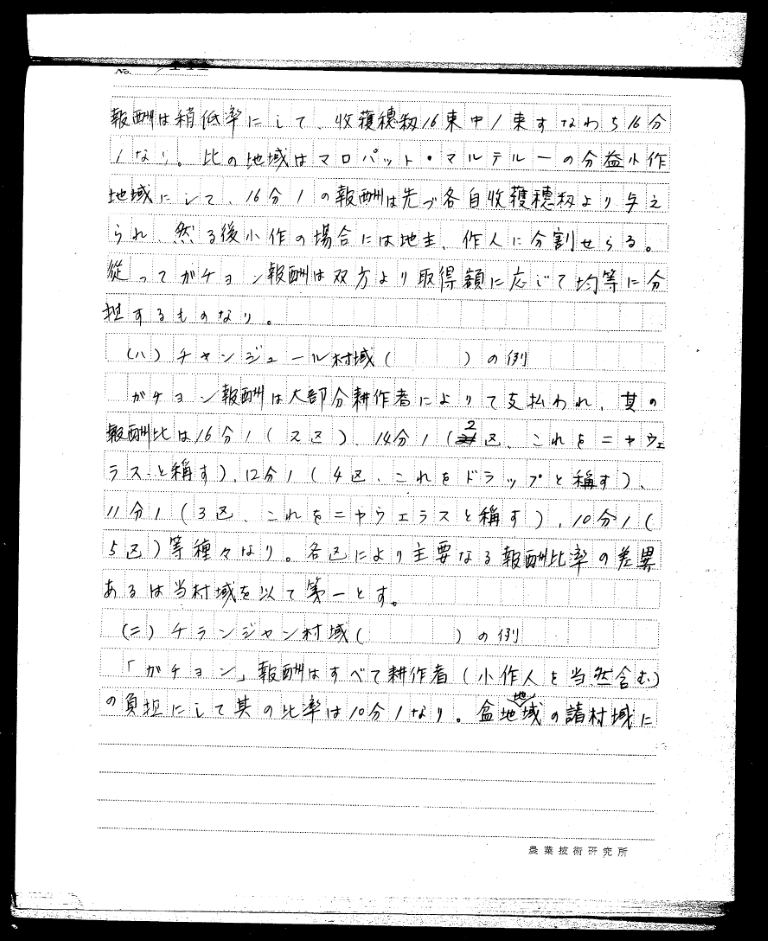 No.
報酬は稍低率にして、收穫穂籾16束中1束すなわち16分
1なり。此の地域はマロパット・マルテルーの分益小作
地域にして、16分1の報酬は先づ各自收穫穂籾より与え
られ、然る後小作の場合には地主、作人に分割せらる。
従ってガチョン報酬は双方より取得額に応じて均等に分
担するものなり。
(ハ)チャンジュール村域(　　　)の例
ガチョン報酬は大部分耕作者によりて支払われ、其の
報酬比は16分1(2区)、14分1(2区、これをニャウェ
ラスと稱す)、12分1(4区、これをドラップと稱す)、
11分1(3区、これをニャウェラスと稱す)、10分1(
5区)等種々なり。各区により主要なる報酬比率の差異
あるは当村域を以て第一とす。
(ニ)チランジャン村域(　　　)の例
「ガチョン」報酬はすべて耕作者(小作人を当然含む)
の負担にして其の比率は10分1なり。盆地地域の諸村域に
農業技術研究所